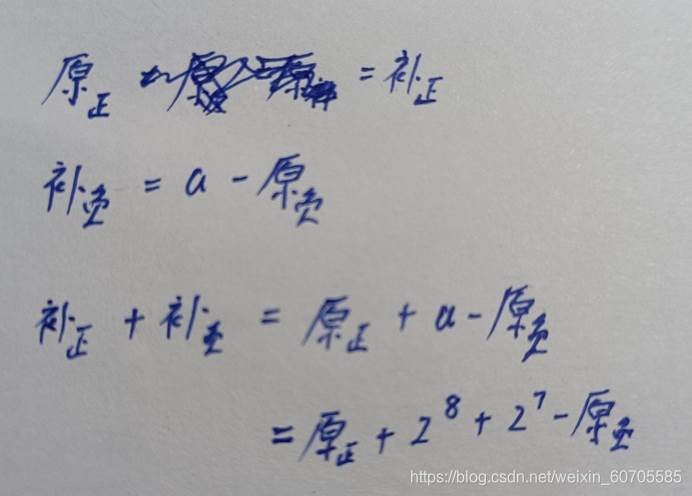 原正 = 补正
补负 = a - 原负
补正 + 补负 = 原正 + a - 原负
= 原正 + 2^8 + 2^7 - 原负
https://blog.csdn.net/weixin_60705585